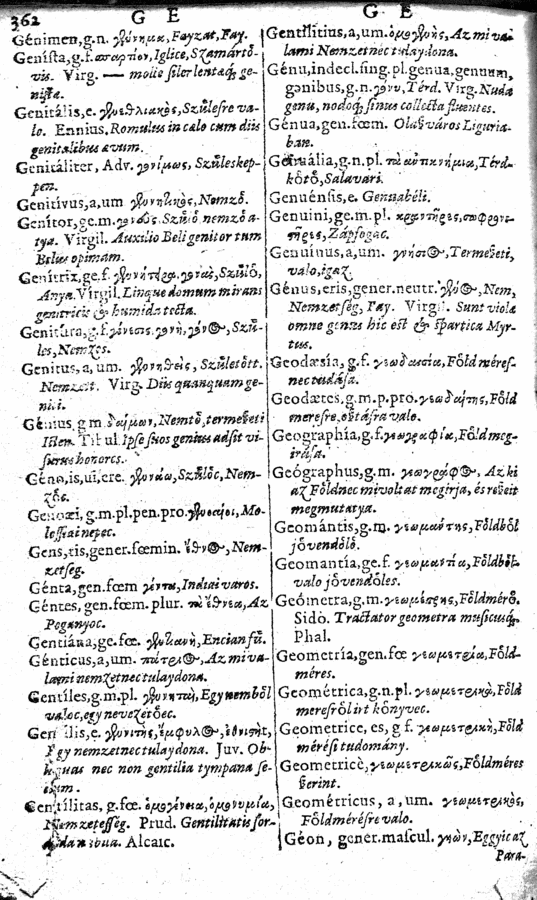 362 G E G E
Génimen, g.n. γέννημα, Fayzat, Fay.
Genísta, g.f. σπαρτίον, Iglice, Szamártö-
vis. Virg. — molle siler lentæq́; ge-
nista.
Genitális, e. γενεθλιακὸς, Szűlesre va-
lo. Ennius. Romulus in cælo cum diis
genitalibus ævum.
Genitáliter, Adv. γονίμως, Szűleskep-
pen.
Genitívus, a, um γεννητικὸς, Nemzô.
Genítor, ge.m. γονεὺς. Szűlô nemzô a-
tya. Virgil. Auxilio Beli genitor tum
Belus opimam.
Genitrix, ge.f. γεννήτειρα. Szűlô,
Anya. Virgil. Linque domum mirans
genitricis & humida tecta.
Genitura, g.f. γένεσις. γονὴ, Szűl-
les, Nemzes.
Genitus, a, um. γεννηθεὶς, Szűletôtt.
Nemzett. Virg. Diis quanquam ge-
niti.
Génius, g m. δαίμων, Nemtô, termeßeti
Isten. Tibul. Ipse suos genius adsit vi-
surus honores.
Géno, is, ui, ere. γεννάω, Szűlôc, Nem-
zôc.
Genoæi, g.m.pl.pen.pro. Mo-
lossiai nepec.
Gens, tis, gener.fœmin. ἔθνος, Nem-
zetség.
Génta, gen.fœm γέντα, Indiai varos.
Géntes, gen.fœm. plur. τὰ ἔθνεα, Az
Poganyoc.
Gentiána, ge.fœ. γεντιανὴ, Encian fű.
Génticus, a, um. πάτριος, Az mi va-
lami nemzetnec tulaydona.
Gentíles, g.m.pl. γεννηταὶ, Egy nembôl
valoc, egy nevezetôec.
Gentilis, e. γεννήτης, ἔμφυλος, ἐθνικὸς,
Egy nemzetnec tulaydona. Juv. Ob-
liquas nec non gentilia tympana se-
cum.
Gentílitas, g.fœ. ὁμογένεια, ὁμονυμία,
Nemzetesség. Prud. Gentilitatis sor-
Alcaic.
Gentilitius, a, um. ὁμογενὴς, Az mi va-
lami Nemzetnec tulaydona.
Génu, indecl.sing.pl. genua, genuum,
genibus, g.n. γόνυ, Térd. Virg. Nuda
genu, nodoq́; sinus collecta fluentes.
Génua, gen.fœm. Olaß város Liguria-
ban.
Genuália, g.n.pl. τὰ ἀντικνήμια, Térd-
kôtô, Salavari.
Genuénsis, e. Genuabéli.
Genuini, ge.m.pl. κραντῆρες, σωφρονι-
στῆρες, Zápfogac.
Genuínus, a, um. γνήσιος, Termeßeti,
valo, igaz
Génus, eris, gener.neutr. γένος, Nem,
Nemzetség, Fay. Virgil. Sunt violæ
omne genus hic est & spartica Myr-
tus.
Geodæsía, g.f. γεωδαισία, Fôld méres-
nec tudása.
Geodætes, g.m.p.pro. γεωδαίτης, Fôld
meresre, oßtásra valo.
Geographía, g.f. γεωγραφία, Fôld meg-
irása.
Geógraphus, g.m. γεωγράφος. Az ki
az Fôldnec mivoltat megirja, és reßeit
megmutatya.
Geomántis, g.m. γεωμάντης, Fôldbôl
jôvendôlô.
Geomantía, ge.f. γεωμαντία, Fôldbôl
valo jôvendôles.
Geómetra, g.m. γεωμέτρης, Fôldmérô.
Sido. Tractator geometra musicusq́;
Phal.
Geometría, gen.fœ γεωμετρία, Fôld-
méres.
Geométrica, g.n.pl. γεωμετρικὰ, Fôld
meresrôl irt kônyvec.
Geometrice, es, g f. γεωμετρικὴ, Fôld
mérési tudomány.
Geometricè, γεωμετρικῶς, Fôldméres
ßerint.
Geométricus, a, um. γεωμετρικὸς,
Fôldmérésre valo.
Géon, gener.mascul. γεὼν, Eggyic az
Para-